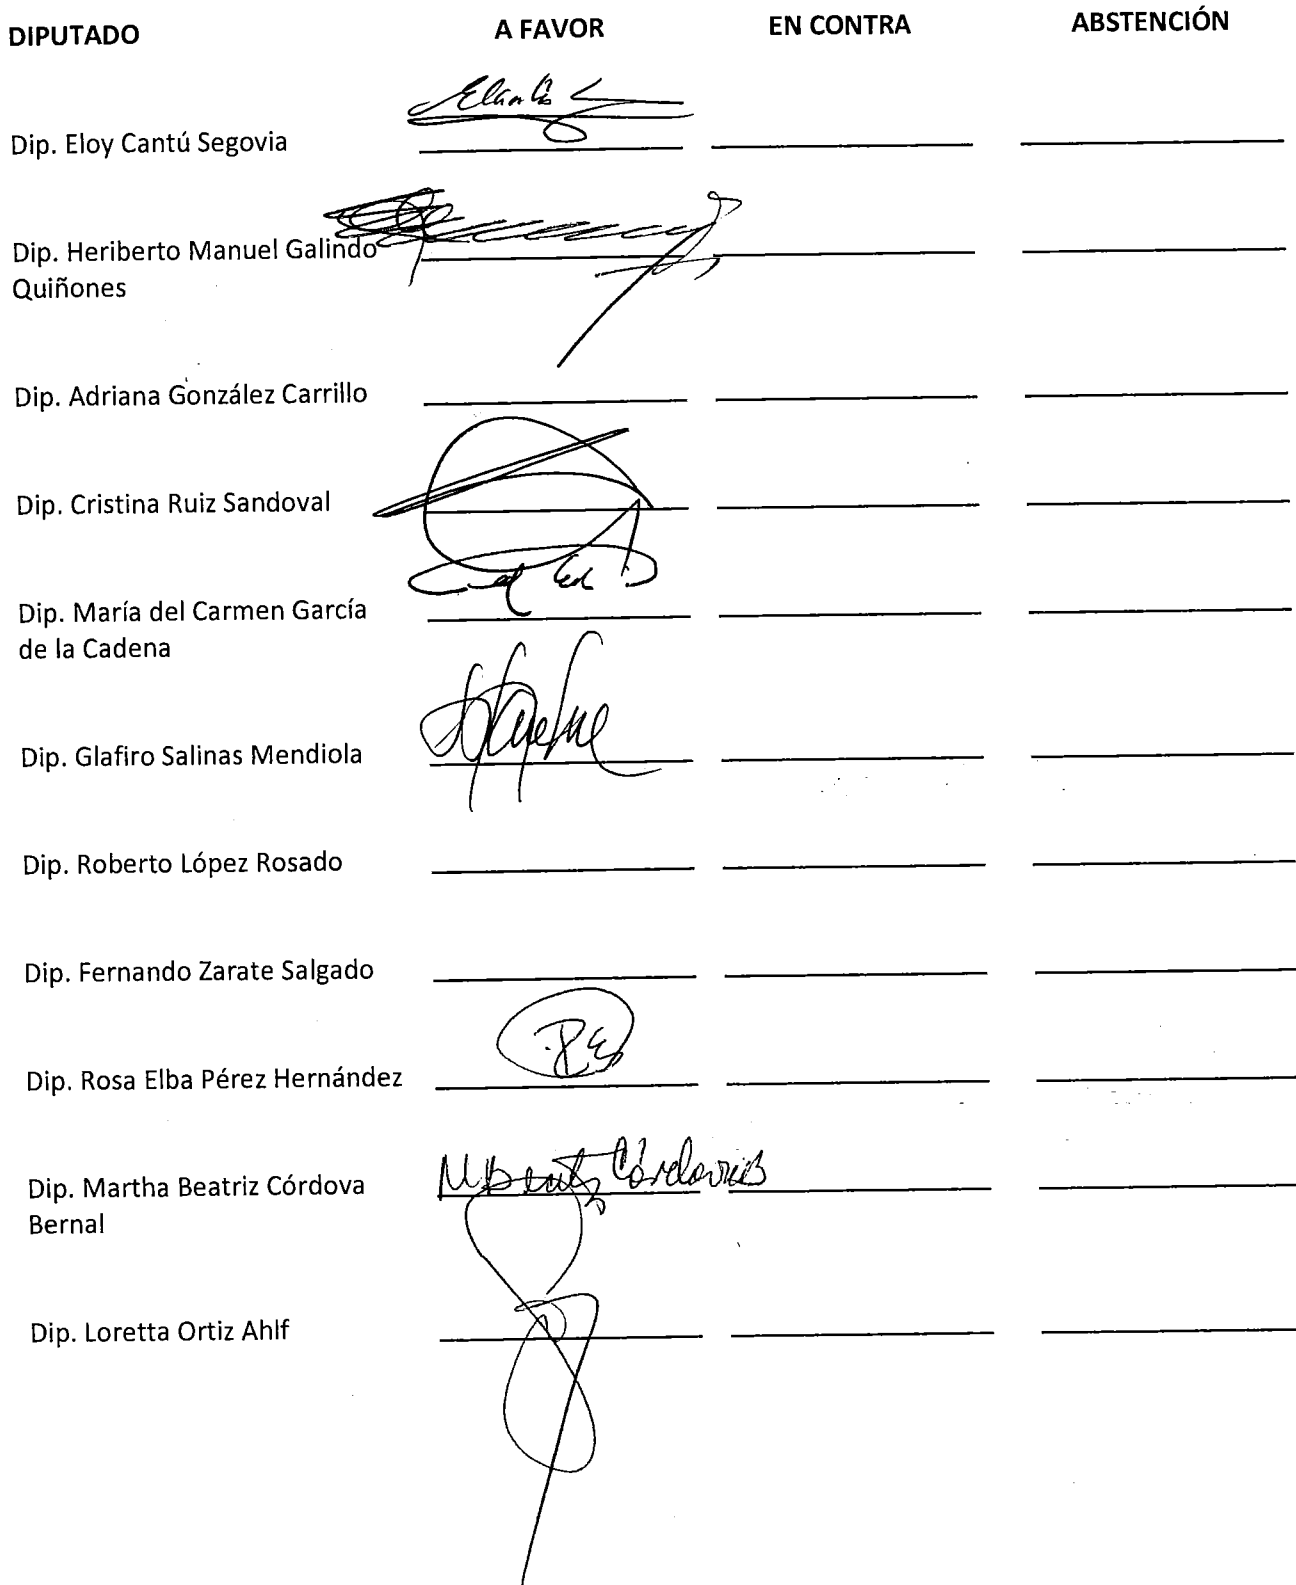 DIPUTADO A FAVOR EN CONTRA ABSTENCIÓN
Dip. Eloy Cantú Segovia
Dip. Heriberto Manuel Galindo
Quiñones
Dip. Adriana González Carrillo
Dip. Cristina Ruiz Sandoval
Dip. María del Carmen García
de la Cadena
Dip. Glafiro Salinas Mendiola
Dip. Roberto López Rosado
Dip. Fernando Zarate Salgado
Dip. Rosa Elba Pérez Hernández
Dip. Martha Beatriz Córdova
Bernal
Dip. Loretta Ortiz Ahlf